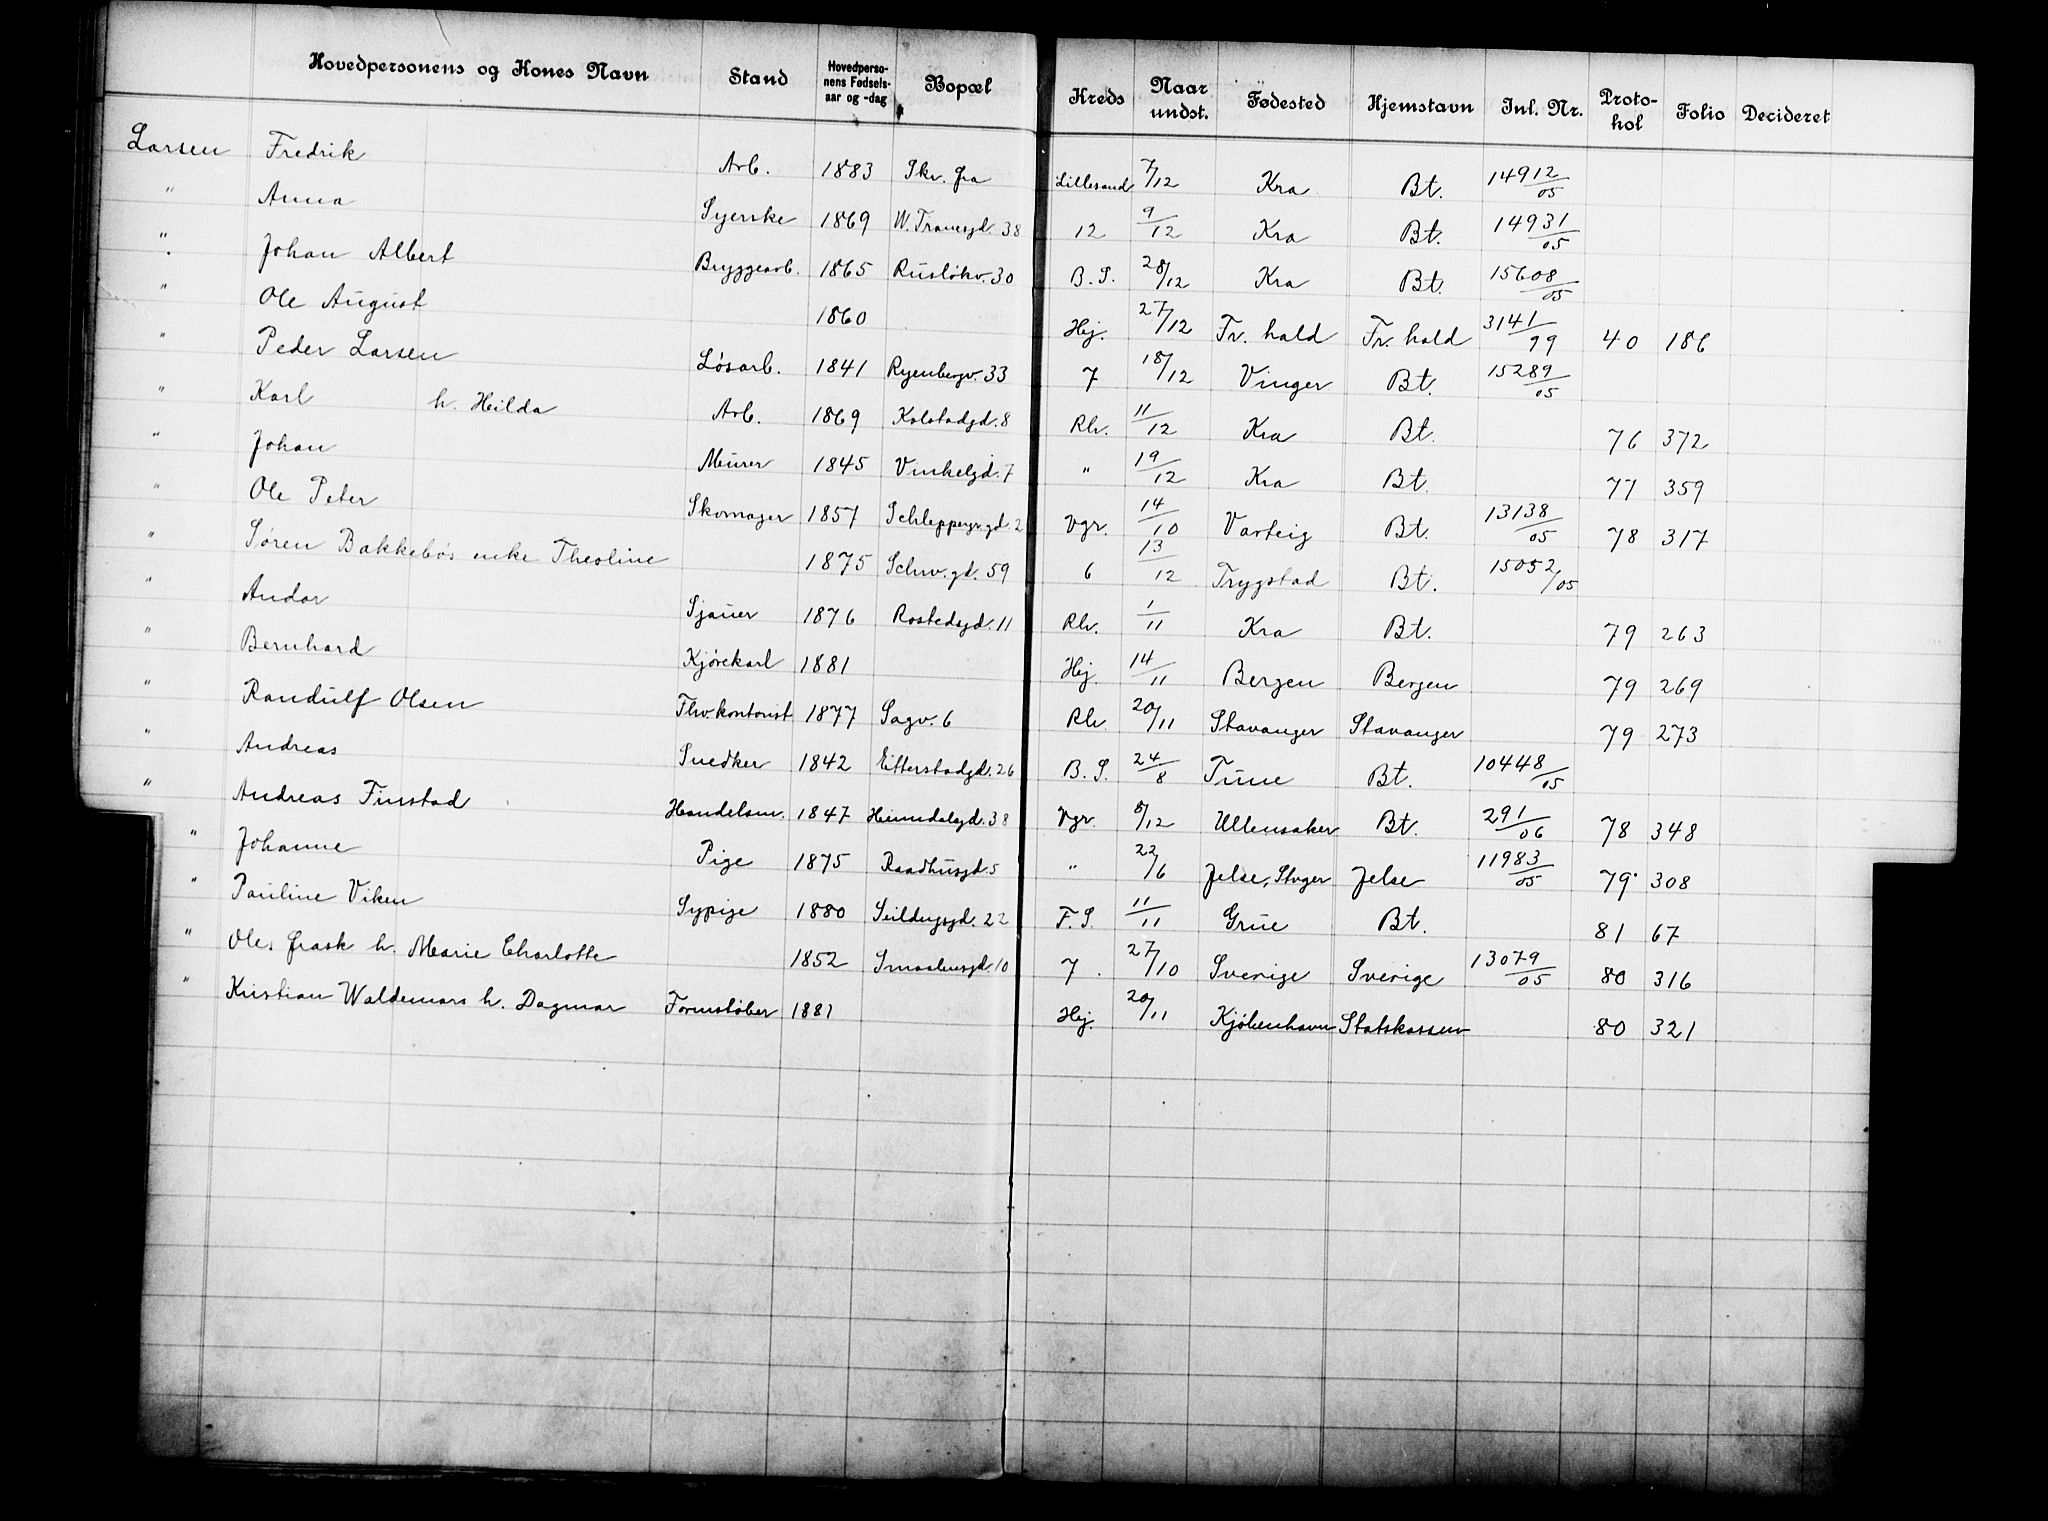 Hovedpersonens og Kones Navn Stand Hovedperso-nens Fødsels-aar og -dag Bopæl Kreds Naar undst. Fødested Hjemstavn Inl. Nr. Proto-kol Folio Decideret
Larsen Fredrik Arb. 1883 Skr. fra Lillesand 7/12 Kra Bt. 14912/05
" Anna Syerske 1869 W. Tranesgd. 38 12 9/12 Kra Bt. 14931/05
" Johan Albert Bryggearb. 1865 Rusløkv. 30 B. S. 28/12 Kra Bt. 15608/05
" Ole August 1860 Hej. 27/12 Fr. hald Fr. hald 3141/99 40 186
" Peder Larsen Løsarb. 1841 Ryenbergv. 33 7 18/12 Vinger Bt. 15289/05
" Karl h. Hilda Arb. 1869 Kolstadgd. 8 Rh. 11/12 Kra Bt. 76 372
" Johan Murer 1845 Vinkelgd. 7 " 19/12 Kra Bt. 77 359
" Ole Peter Skomager 1857 Schleppegr.gd. 2 Vgr. 14/10 Varteig Bt. 13138/05 78 317
" Søren Bakkebøs enke Theoline 1875 Schw. gd. 59 6 13/12 Trygstad Bt. 15052/05
" Andor Sjauer 1876 Rostedsgd. 11 Rh. 1/11 Kra Bt. 79 263
" Bernhard Kjørekarl 1881 Hej. 14/11 Bergen Bergen 79 269
" Randulf Olsen Fhv. kontorist 1877 Sagv. 6 Rh. 20/11 Stavanger Stavanger 79 273
" Andreas Snedker 1842 Eitterstadgd. 26 B. S. 24/8 Tune Bt. 10448/05
" Andreas Finstad Handelsm. 1847 Heimdalsgd. 38 Vgr. 8/12 Ullensaker Bt. 291/06 78 348
" Johanne Pige 1875 Raadhusgd. 5 " 22/6 Jelse, Stvger Jelse 11983/05 79 308
" Pauline Viken Sypige 1880 Seildugsgd. 22 F. S. 11/11 Grue Bt. 81 67
" Ole, frask h. Marie Charlotte 1852 Smaalensgd. 10 7 27/10 Sverige Sverige 13079/05 80 316
" Kristian Waldemars h. Dagmar Formstøber 1881 Hej. 20/11 Kjøbenhavn Statskassen 80 321